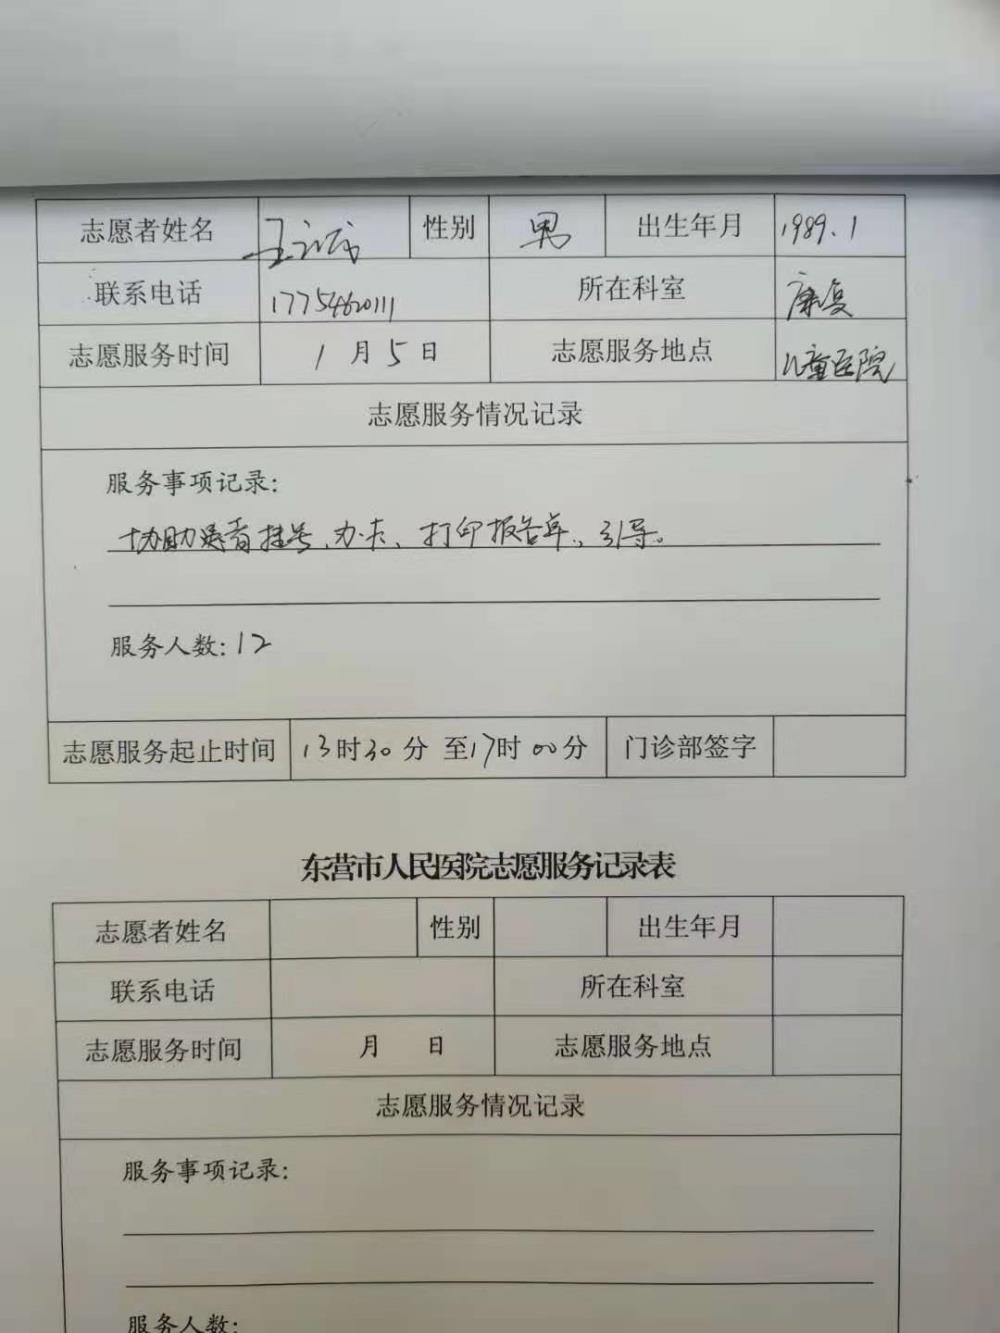 志愿者姓名 王 性别 男 出生年月 1989.1
联系电话 17754620111 所在科室 康复
志愿服务时间 1月5日 志愿服务地点 儿童医院
志愿服务情况记录
服务事项记录:
协助患者挂号、办卡、打印报告单、引导。
服务人数:12
志愿服务起止时间 13时30分 至17时00分 门诊部签字
东营市人民医院志愿服务记录表
志愿者姓名 性别 出生年月
联系电话 所在科室
志愿服务时间 月 日 志愿服务地点
志愿服务情况记录
服务事项记录:
服务人数: